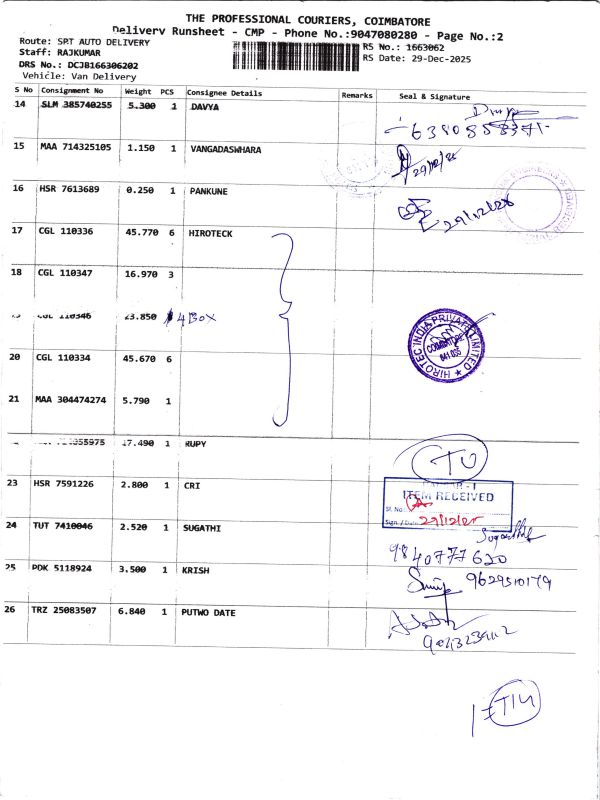 THE PROFESSIONAL COURIERS, COIMBATORE
Delivery Runsheet - CMP - Phone No.:9047080280 - Page No.:2
Route: SRT AUTO DELIVERY
RS No.: 1663062
Staff: RAJKUMAR
RS Date: 29-Dec-2025
DRS No.: DCJB166306202
Vehicle: Van Delivery
S No Consignment No Weight PCS Consignee Details Remarks Seal & Signature
14 SLM 385740255 5.300 1 DAVYA
15 MAA 714325105 1.150 1 VANGADASWHARA
29/12/25
16 HSR 7613689 0.250 1 PANKUNE
29/12/25
17 CGL 110336 45.770 6 HIROTECK
18 CGL 110347 16.970 3
CGL 110346 23.850 4 BOX
HIROTEC INDIA PRIVATE LIMITED
COIMBATORE
641 035
20 CGL 110334 45.670 6
21 MAA 304474274 5.790 1
17.490 1 RUPY
23 HSR 7591226 2.800 1 CRI
ITEM RECEIVED
Sl. No:
Sign. / Date 29/12/25
24 TUT 7410046 2.520 1 SUGATHI
9840777620
25 PDK 5118924 3.500 1 KRISH
9629510179
26 TRZ 25083507 6.840 1 PUTWO DATE